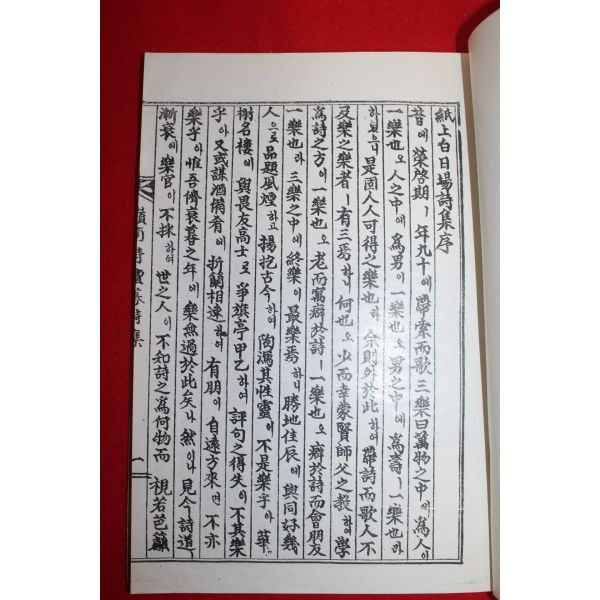 紙上白日場詩集序
昔에 榮啓期ㅣ 年九十에 帶索而歌三樂曰萬物之中에 爲人이
一樂也오 人之中에 爲男이 一樂也오 男之中에 爲壽ㅣ 一樂也라
하였으니 是固人人可得之樂也라 余則外於此하여 帶詩而歌人不
及樂之樂者ㅣ 有三焉하니 何也오 少而幸蒙賢師父之敎하여 學
爲詩之方이 一樂也오 老而寓癖於詩ㅣ 一樂也오 癖於詩而會朋友
一樂也라 三樂之中에 終樂이 最樂焉하니 勝地佳辰에 與同好幾
人으로 品題風煙하고 揚扢古今하여 陶瀉其性靈이 不是樂乎아 華
榭名樓에 與畏友高士로 爭旗亭甲乙하여 評句之得失이 不其樂
乎아 又或謀酒備肴에 折簡相速하여 有朋이 自遠方來면 不亦
樂乎아 惟吾儕衰暮之年에 樂無過於此矣나 然이나 見今詩道
漸衰에 樂官이 不採하여 世之人이 不知詩之爲何物而 視若芭籬
嶺南詩壇 詩集 一